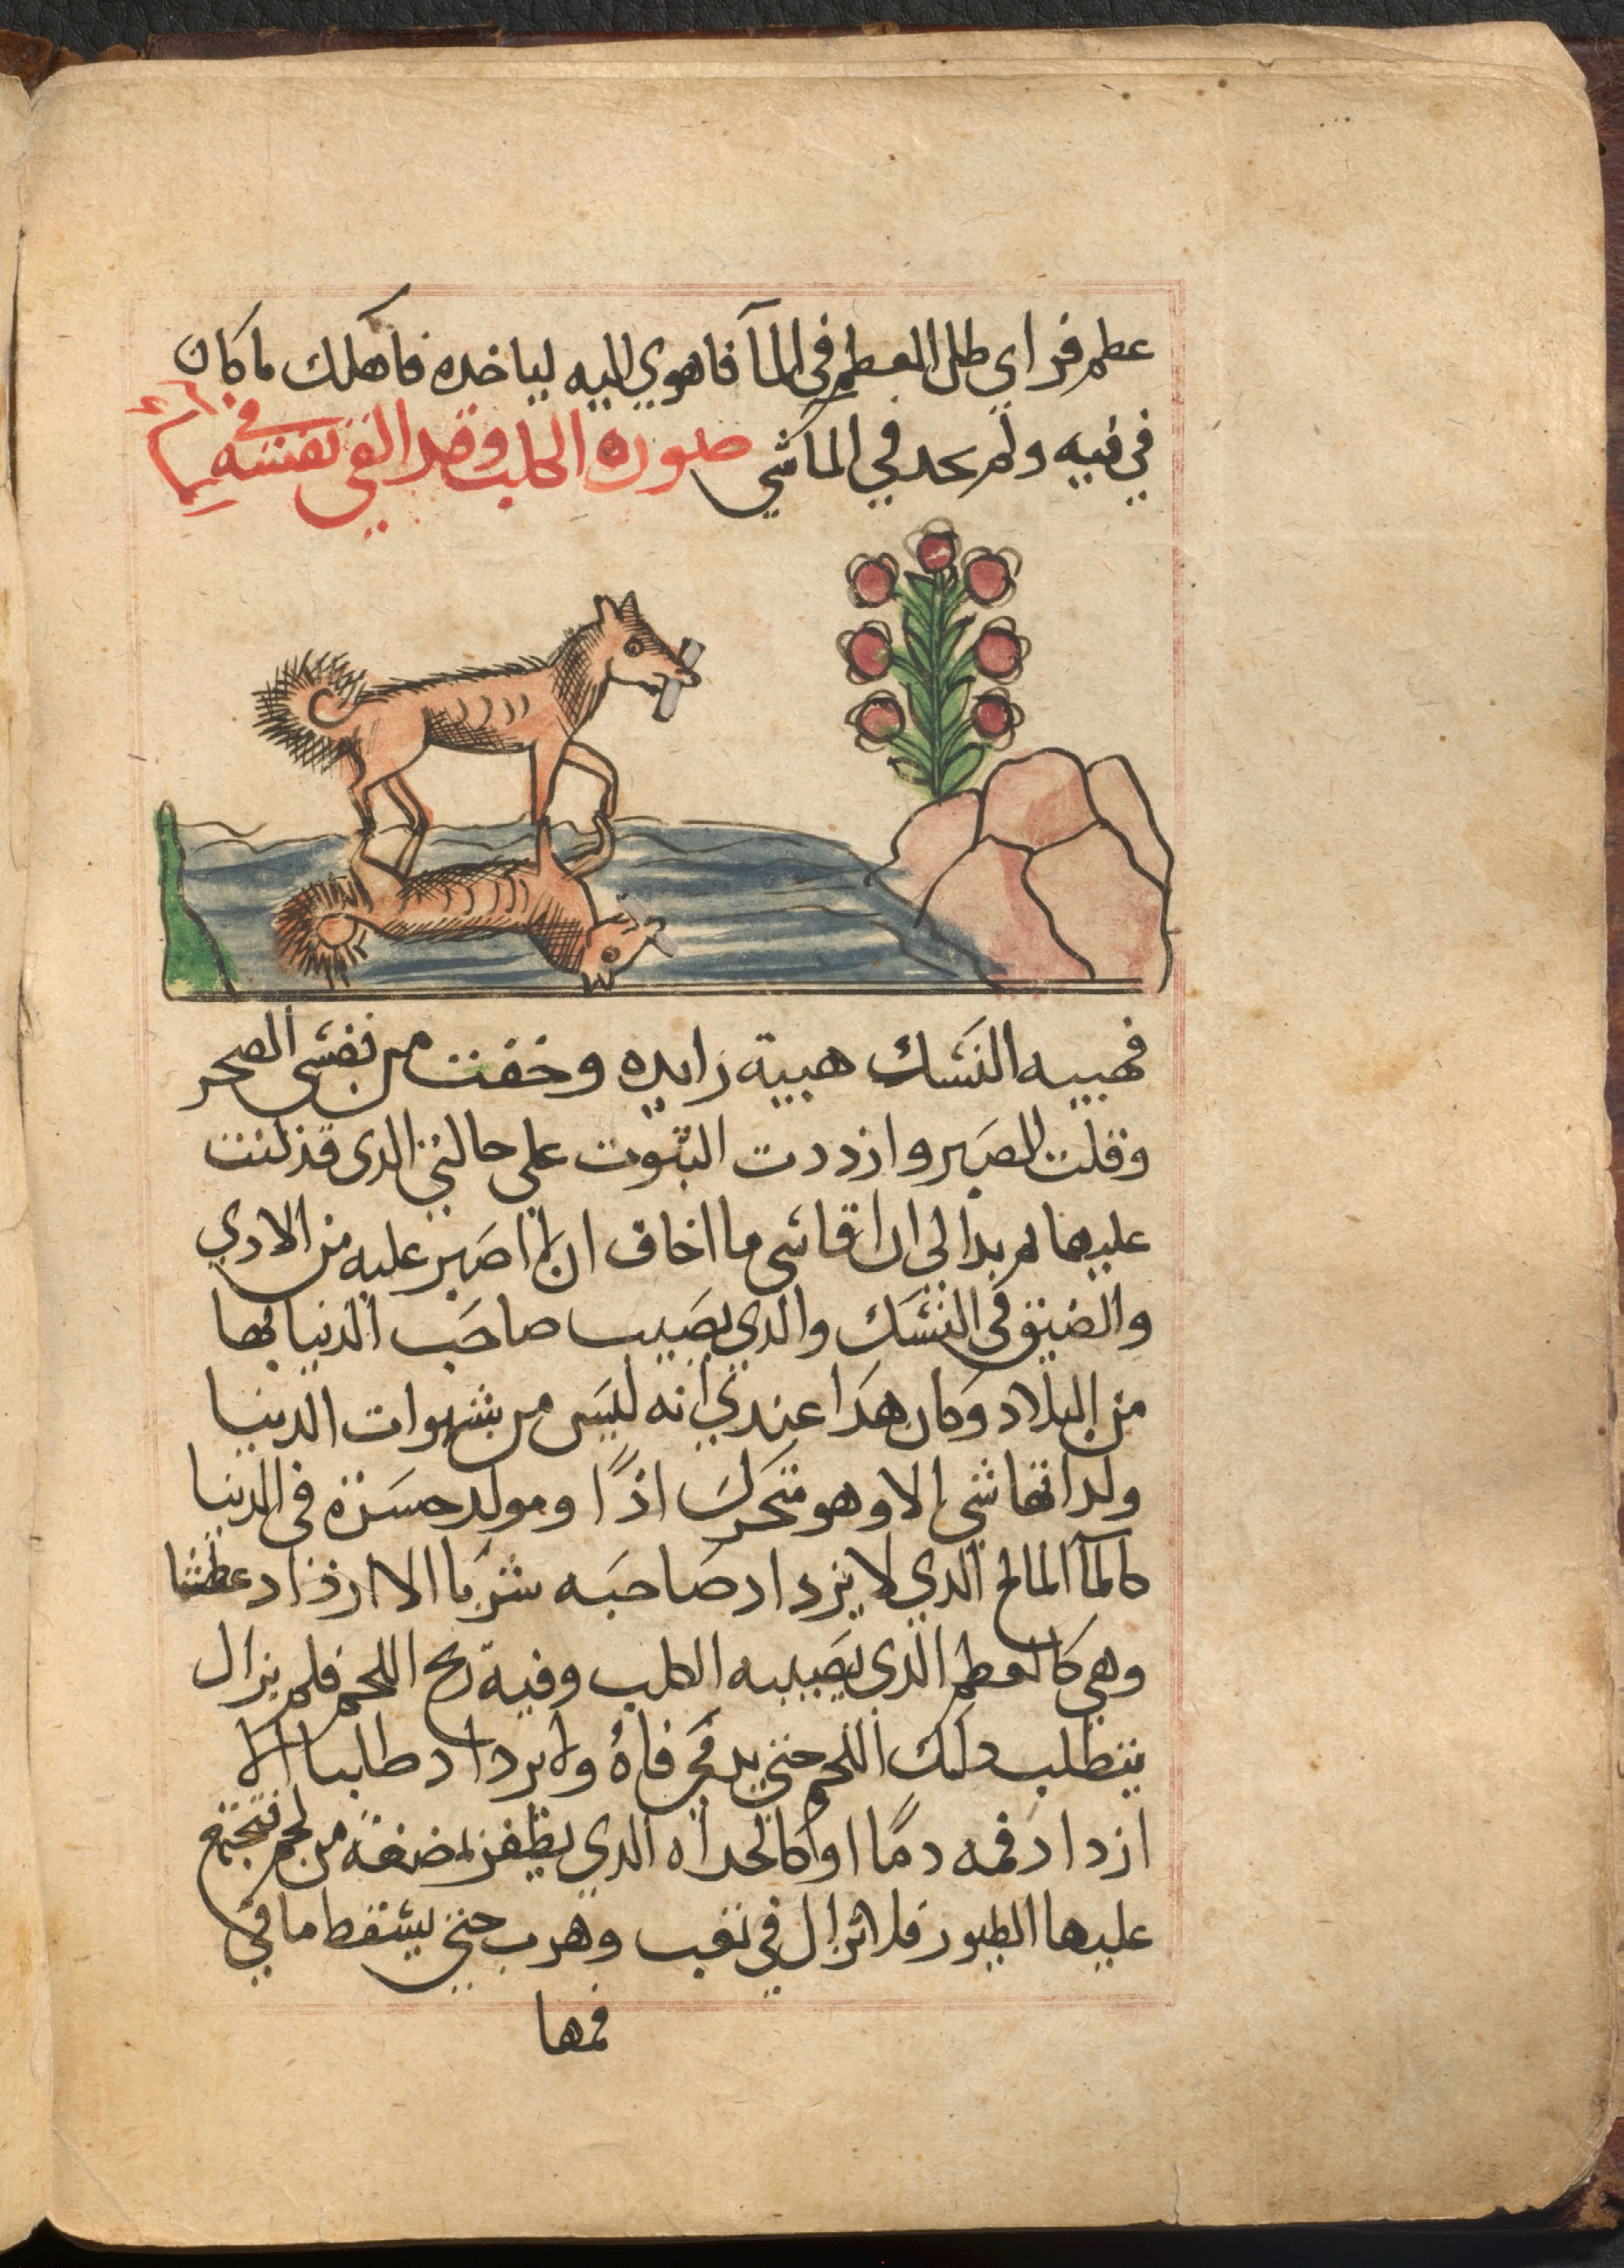 عطم فراي طل العطم في المآ فاهوي اليه لياخده فاهلك ما كان
في فيه ولم يجد في الما شي صوره الكلب وقد القي نفسه في
المآ
فهيبه النسك هيبة زايده وخفت من نفسي الصجر
وقلت الصبر وازددت الثبوت علي حالتي الدى قد كنت
عليها لم بدا لي ان اقاسي ما اخاف ان لم اصبر عليه من الادي
والضيق في النسك والدي يصيب صاحب الدنيا بها
من البلاد وكان هدا عندي انه ليس من شهوات الدنيا
ولداتها شي الا وهو متحرك اذًا ومولد حسرة في الدنيا
كالمآ المالح الدي لا يزداد صاحبه شربا الا ازداد عطشا
وهي كالعطم الذي يصيبه الكلب وفية ريح اللحم فلم يزال
يتطلب دلك اللحم حتي يدمي فاهُ ولا يزداد طلبا الا
ازداد فمه دمًا او كالحداه الدي يظفر بمضغة من لحم فتجتمع
عليها الطيور فلا تزال في تعب وهرب حتي يسقط ما في
فمها